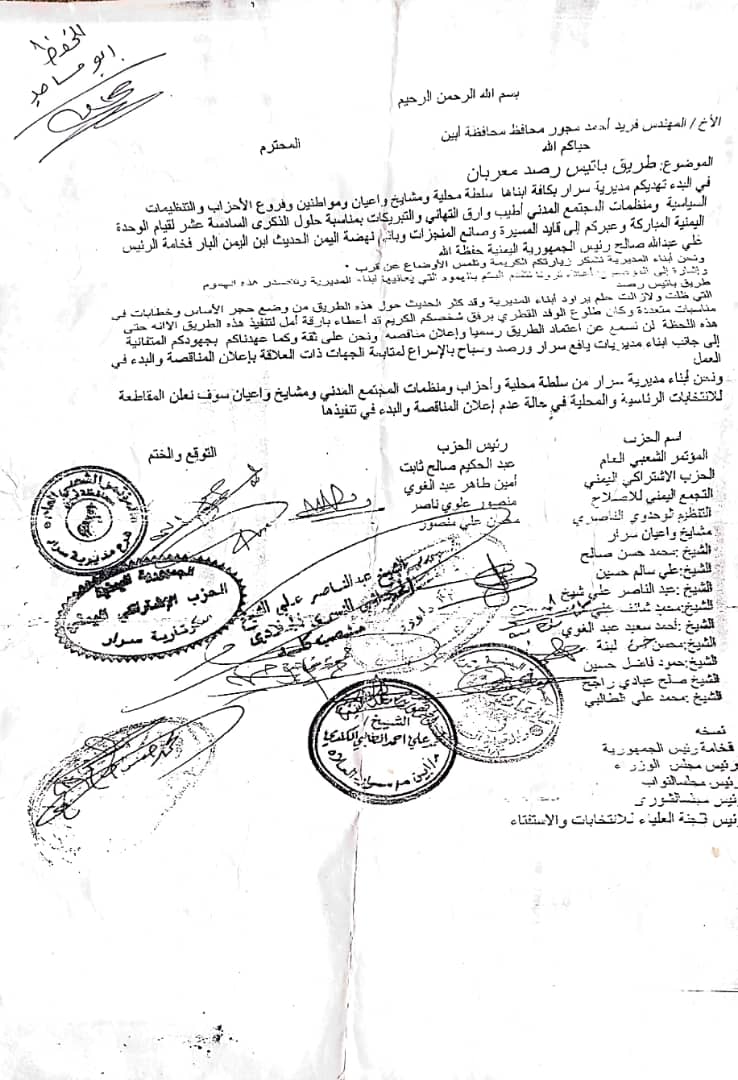 للحفظ
ابو ماجد
بسم الله الرحمن الرحيم
الأخ/ المهندس فريد أحمد مجور محافظ محافظة أبين المحترم
حياكم الله
الموضوع: طريق باتيس رصد معربان
في البدء تهديكم مديرية سرار بكافة ابناها سلطة محلية ومشايخ واعيان ومواطنين وفروع الأحزاب والتنظيمات
السياسية ومنظمات المجتمع المدني أطيب وارق التهاني والتبريكات بمناسبة حلول الذكرى السادسة عشر لقيام الوحدة
اليمنية المباركة وعبركم إلى قايد المسيرة وصانع المنجزات وباني نهضة اليمن الحديث ابن اليمن البار فخامة الرئيس
علي عبدالله صالح رئيس الجمهورية اليمنية حفظة الله
ونحن أبناء المديرية نشكر زيارتكم الكريمة وتلمس الأوضاع عن قرب
وإشارة إلى التي يعانيها أبناء المديرية ويتصدر هذه الهموم
طريق باتيس رصد
التي ظلت ولازالت حلم يراود أبناء المديرية وقد كثر الحديث حول هذه الطريق من وضع حجر الأساس وخطابات في
مناسبات متعددة وكان طلوع الوفد القطري برفق شخصكم الكريم قد أعطاء بارقة أمل لتنفيذ هذه الطريق الاانه حتى
هذه اللحظة لن نسمع عن اعتماد الطريق رسميا وإعلان مناقصة ونحن على ثقة وكما عهدناكم بجهودكم المتفانية
إلى جانب ابناء مديريات يافع سرار ورصد وسباح بالإسراع لمتابعة الجهات ذات العلاقة بإعلان المناقصة والبدء في
العمل
ونحن أبناء مديرية سرار من سلطة محلية وأحزاب ومنظمات المجتمع المدني ومشايخ واعيان سوف نعلن المقاطعة
للانتخابات الرئاسية والمحلية في حالة عدم إعلان المناقصة والبدء في تنفيذها
اسم الحزب رئيس الحزب التوقع والختم
المؤتمر الشعبي العام عبد الحكيم صالح ثابت
الحزب الإشتراكي اليمني أمين طاهر عبد الغوي
التجمع اليمني للاصلاح منصور علوي ناصر
التنظيم لوحدوي الناصري محسن علي منصور
مشايخ واعيان سرار
الشيخ:محمد حسن صالح
الشيخ:علي سالم حسين
الشيخ: عبد الناصر علي شيخ
الشيخ:سعيد شائف علي
الشيخ: أحمد سعيد عبد الغوي
الشيخ:محسن لينة
الشيخ:حمود فاضل حسين
الشيخ صالح عبادي راجح
الشيخ: محمد علي الطالبي
المؤتمر الشعبي العام
فرع مديرية سرار
الجمهورية اليمنية
الحزب الإشتراكي اليمني
سكرتارية سرار
الشيخ عبد الناصر علي الشيخ
الشيخ/
علي احمد الطالبي الكلدي
نسخه
فخامة رئيس الجمهورية
رئيس مجلس الوزراء
رئيس مجلس النواب
رئيس مجلس الشورى
رئيس لجنة العلياء للانتخابات والاستفتاء